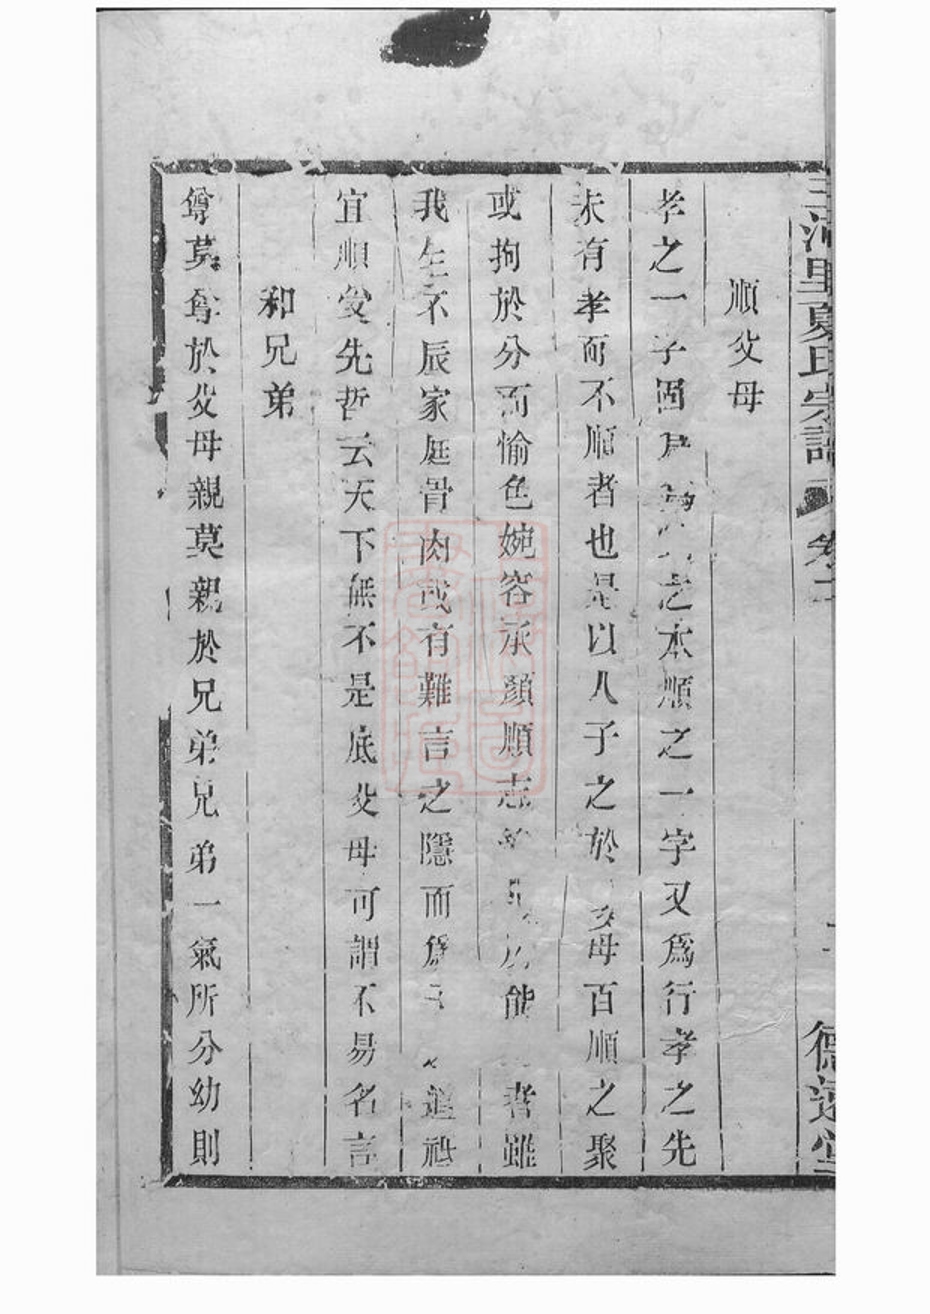 里夏氏宗譜 卷二 德遠堂
順父母
孝之一字固之本順之一字又爲行孝之先
未有孝而不順者也是以人子之於父母百順之聚
或拘於分而愉色婉容承顏順志能者雖
我生不辰家庭骨肉或有難言之隱而爲道祗
宜順受先哲云天下無不是底父母可謂不易名言
和兄弟
尊莫尊於父母親莫親於兄弟兄弟一氣所分幼則